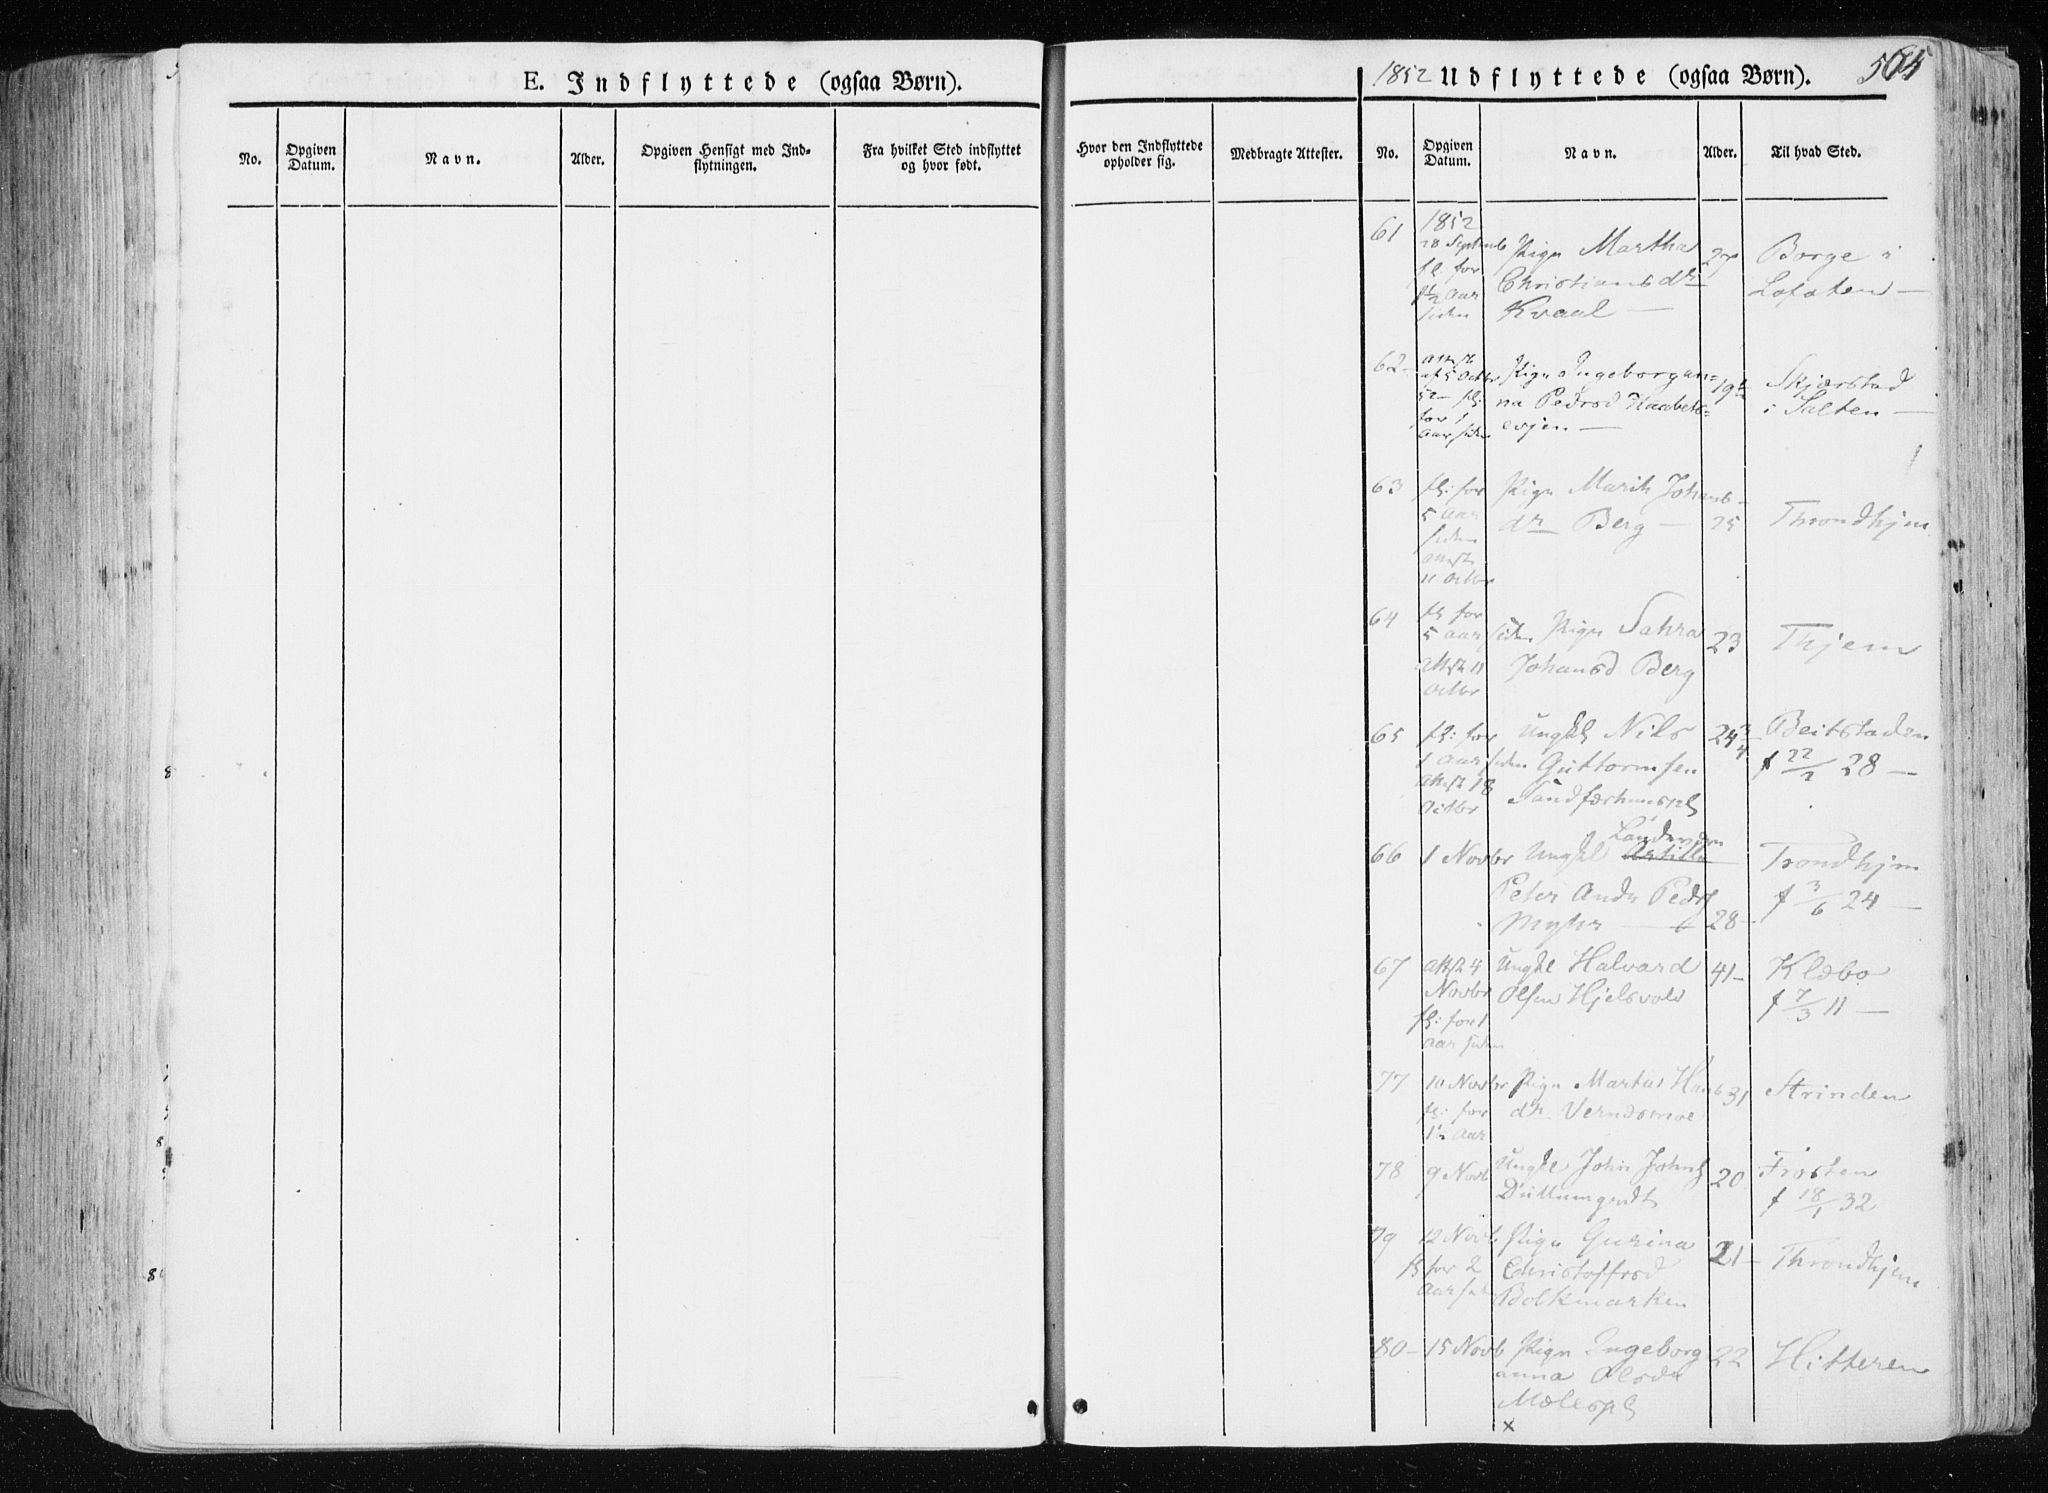 E. Indflyttede (ogsaa Børn).
No.
Opgiven
Datum.
Navn.
Alder.
Opgiven Hensigt med Ind-
flytningen.
Fra hvilket Sted indflyttet
og hvor født.
Hvor den Indflyttede
opholder sig.
Medbragte Attester.
1852 Udflyttede (ogsaa Børn).
565
No.
Opgiven
Datum.
Navn.
Alder.
Til hvad Sted.
1852
61 28 Septemb Pige Martha 27 Borge i
fl. for Christiansdr Lofoten —
1½ Aar
siden Kvaal —
62 Attest
af 5 Octbr Pige Ingeborgan= 19 Skjerstad
52 fl: na Pedrsd i Salten —
for 1
Aar siden evjen —
63 fl: for Pige Marit Johans- 25 Throndhjem
5 Aar dr Berg —
siden
Attest
11 Octbr
64 fl for
5 Aar siden Pige Sahra 23 Thjem
Attest 11 Johansd Berg
Octbr
65 fl: for Ungkl Nils 24 Beitstaden
1 Aar siden Guttormsen f 22/2 28 —
Attest 18
Octbr
66 1 Novbr Ungkl Trondhjem
Peter Andr Peds f 3/6 24 —
Myhr — 28 —
67 Attst 4 Ungkl Halvard 41 — Klæbo
Novbr Olsen Hjelsvold f 7/3 11 —
fl: for 1
Aar siden
77 10 Novbr Pige Marta Hans 31 Strinden
fl: for dr.
1½ Aar
78 9 Novb Ungkl John Johns 20 Frosten
f 18/1 32
79 12 Novb Pige Gurina 21 — Throndhjem
fl for 2 Christoffrsd
Aar sid Bolkmarken
80 — 15 Novb Pige Ingeborg 22 Hitteren
anna Olsdr
Mælespl
x